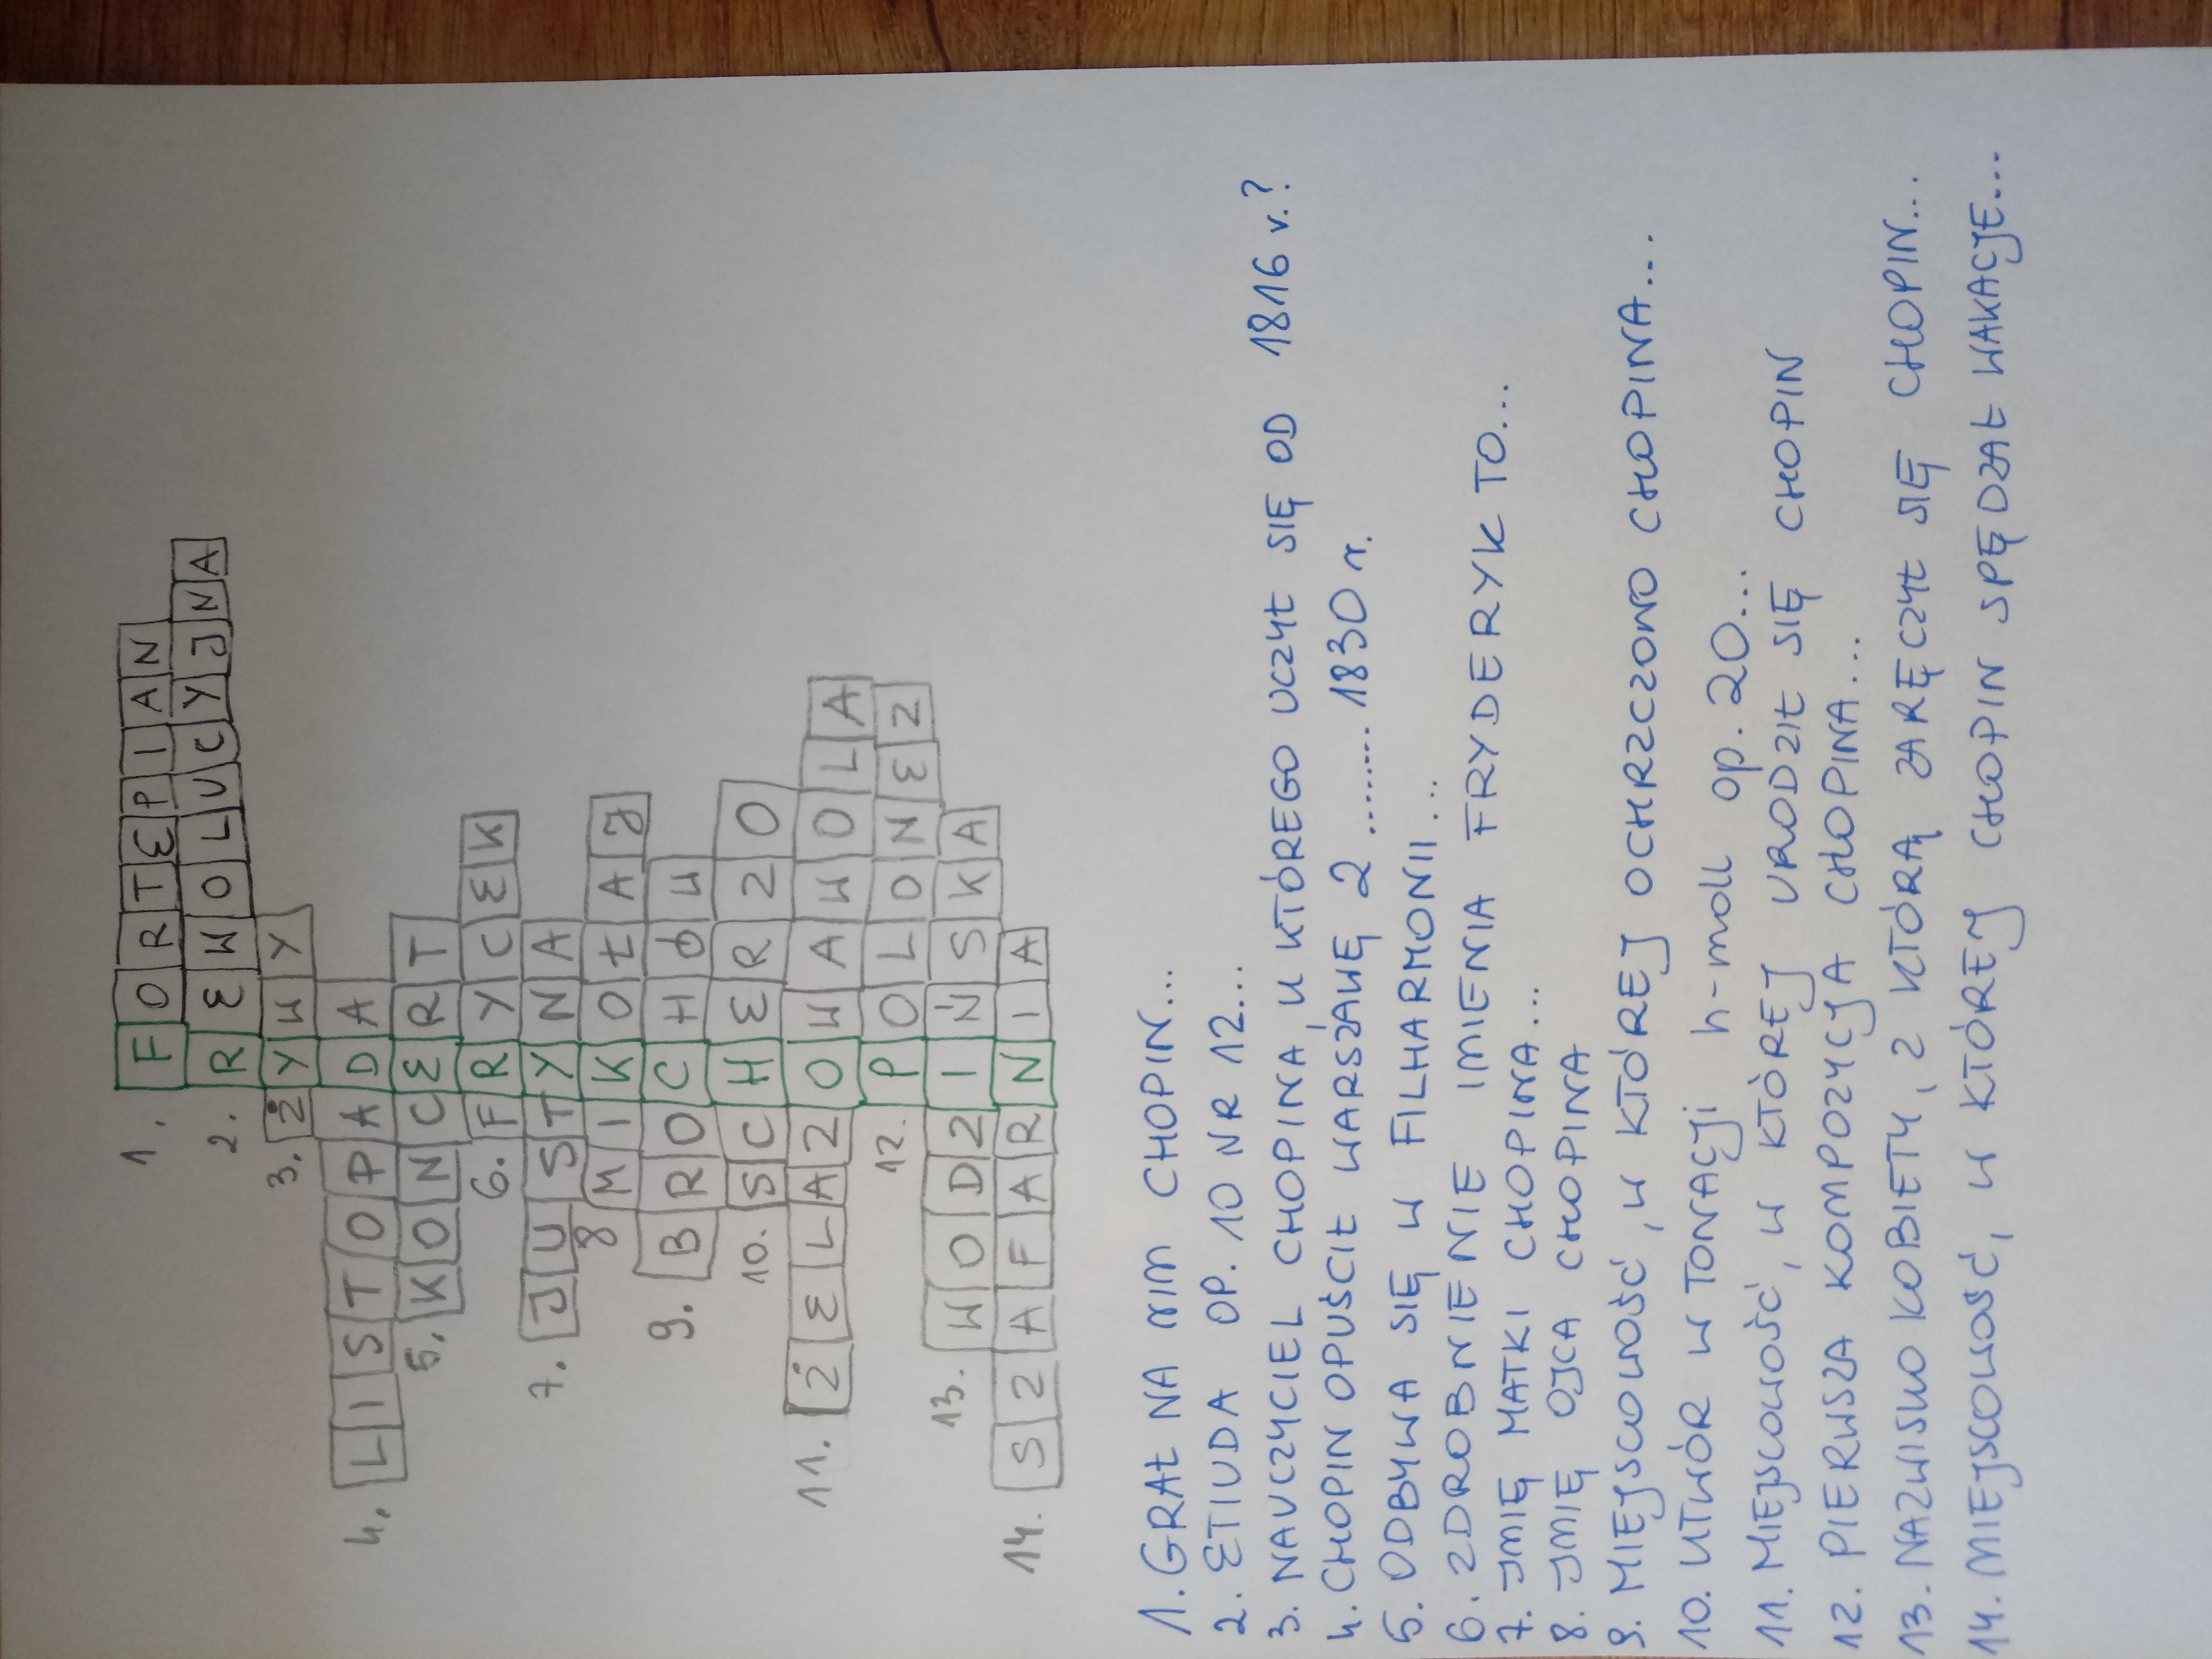 1. FORTEPIAN
2. REWOLUCYJNA
3. ŻYWY
4. LISTOPADA
5. KONCERT
6. FRYCEK
7. JUSTYNA
8 MIKOŁAJ
9. BROCHÓW
10. SCHERZO
11. ŻELAZOWAWOLA
12. POLONEZ
13. WODZIŃSKA
14. SZAFARNIA
1. GRAŁ NA NIM CHOPIN...
2. ETIUDA OP. 10 NR 12...
3. NAUCZYCIEL CHOPINA, U KTÓREGO UCZYŁ SIĘ OD 1816 r.?
4. CHOPIN OPUŚCIŁ WARSZAWĘ 2 ......... 1830 r.
5. ODBYWA SIĘ W FILHARMONII...
6. ZDROBNIENIE IMIENIA FRYDERYK TO...
7. IMIĘ MATKI CHOPINA...
8. IMIĘ OJCA CHOPINA
9. MIEJSCOWOŚĆ, W KTÓREJ OCHRZCZONO CHOPINA...
10. UTWÓR W TONACJI h-moll op. 20...
11. MIEJSCOWOŚĆ, W KTÓREJ URODZIŁ SIĘ CHOPIN
12. PIERWSZA KOMPOZYCJA CHOPINA...
13. NAZWISKO KOBIETY, Z KTÓRĄ ZARĘCZYŁ SIĘ CHOPIN...
14. MIEJSCOWOŚĆ, W KTÓREJ CHOPIN SPĘDZAŁ WAKACJE...